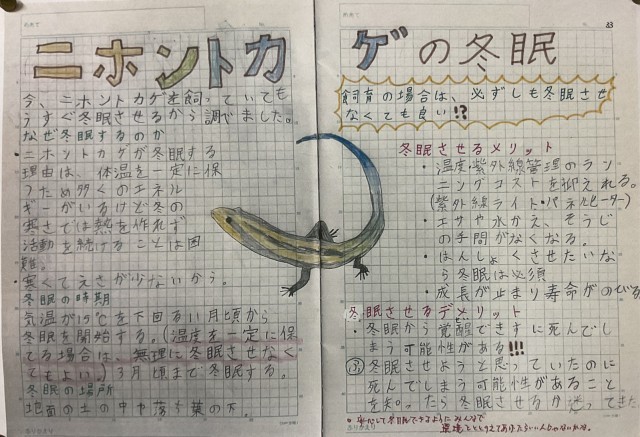 ニホントカゲの冬眠
今、ニホントカゲを飼っていても
うすぐ冬眠させるから調べました。
なぜ冬眠するのか
ニホントカゲが冬眠する
理由は、体温を一定に保
つため多くのエネル
ギーがいるけど冬の
寒さでは熱を作れず
活動を続けることは困
難。
寒くてえさが少ないから。
冬眠の時期
気温が15℃を下回る11月頃から
冬眠を開始する。(温度を一定に保
てる場合は、無理に冬眠させなく
てもよい)3月頃まで冬眠する。
冬眠の場所
地面の土の中や落ち葉の下。
33
飼育の場合は、必ずしも冬眠させ
なくても良い!?
冬眠させるメリット
・温度・紫外線管理のラン
ニングコストを抑えれる。
(紫外線ライト・パネルヒーター)
・エサや水かえ、そうじ
の手間がなくなる。
・はんしょくさせたいな
ら冬眠は必須
・成長が止まり寿命がのびる
冬眠させるデメリット
・冬眠から覚醒できずに死んでし
まう可能性がある!!!
ふ 冬眠させようと思っていたのに
死んでしまう可能性があること
を知ったら冬眠させるか迷ってきた